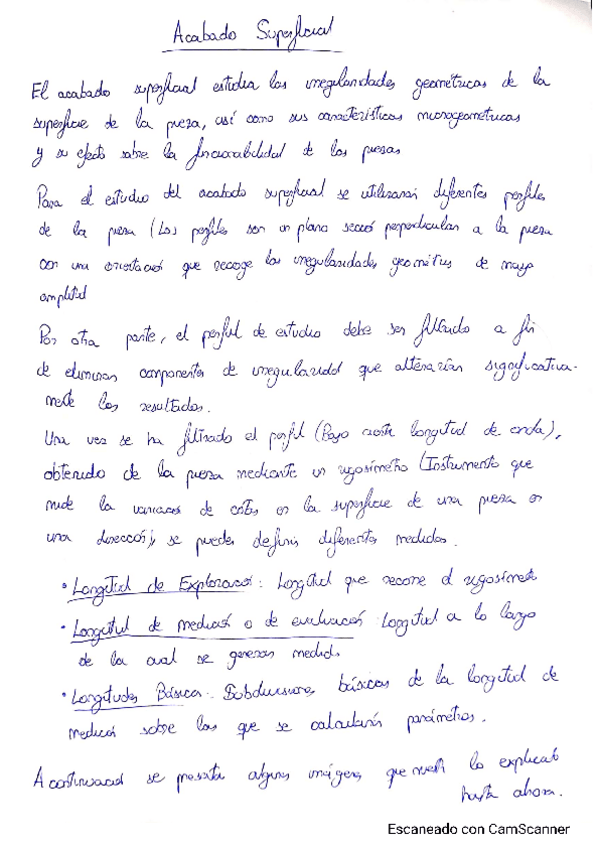 Acabado Superficial
El acabado superficial estudia las irregularidades geométricas de la
superficie de la pieza, así como sus características microgeométricas
y su efecto sobre la funcionabilidad de las piezas
Para el estudio del acabado superficial se utilizarán diferentes perfiles
de la pieza (Los perfiles son un plano secció perpendicular a la pieza
con una orientación que recoge las irregularidades de mayor
amplitud
Por otra parte, el perfil de estudio debe ser filtrado a fin
de eliminar componentes de irregularidad que alterarían significativa-
mente los resultados.
Una vez se ha filtrado el perfil (Bajo cierta longitud de onda),
obtenido de la pieza mediante un rugosímetro (Instrumento que
mide la variación de en la superficie de una pieza en
una dirección), se puede definir diferentes medidas.
• Longitud de Exploración: Longitud que recorre el rugosímetro
• Longitud de medición o de evaluación: Longitud a lo largo
de la cual se generan medid.
• Longitudes Básica: Subdivisiones básicas de la longitud de
medición sobre las que se calcularán parámetros.
A continuación se presenta algunas imágenes que lo explicado
hasta ahora.
Escaneado con CamScanner